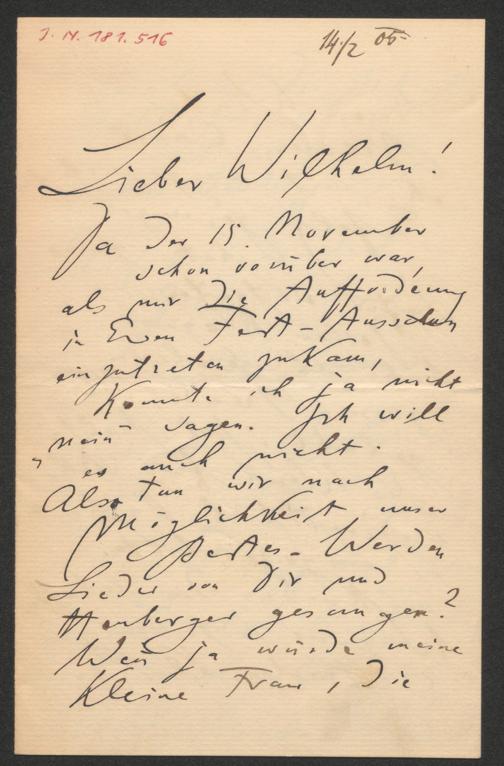 J. N. 181.516
14./2 05
Lieber Wilhelm!
Da der 15. November
schon vorüber war,
als mir die Aufforderung
in Euren Fest-Ausschuss
einzutreten zukam,
konnte ich ja nicht
„nein" sagen. Ich will
es auch nicht.
Also tun wir nach
Möglichkeit unser
Bestes. Werden
Lieder von Dir und
Heuberger gesungen?
Wenn ja würde meine
kleine Frau, die